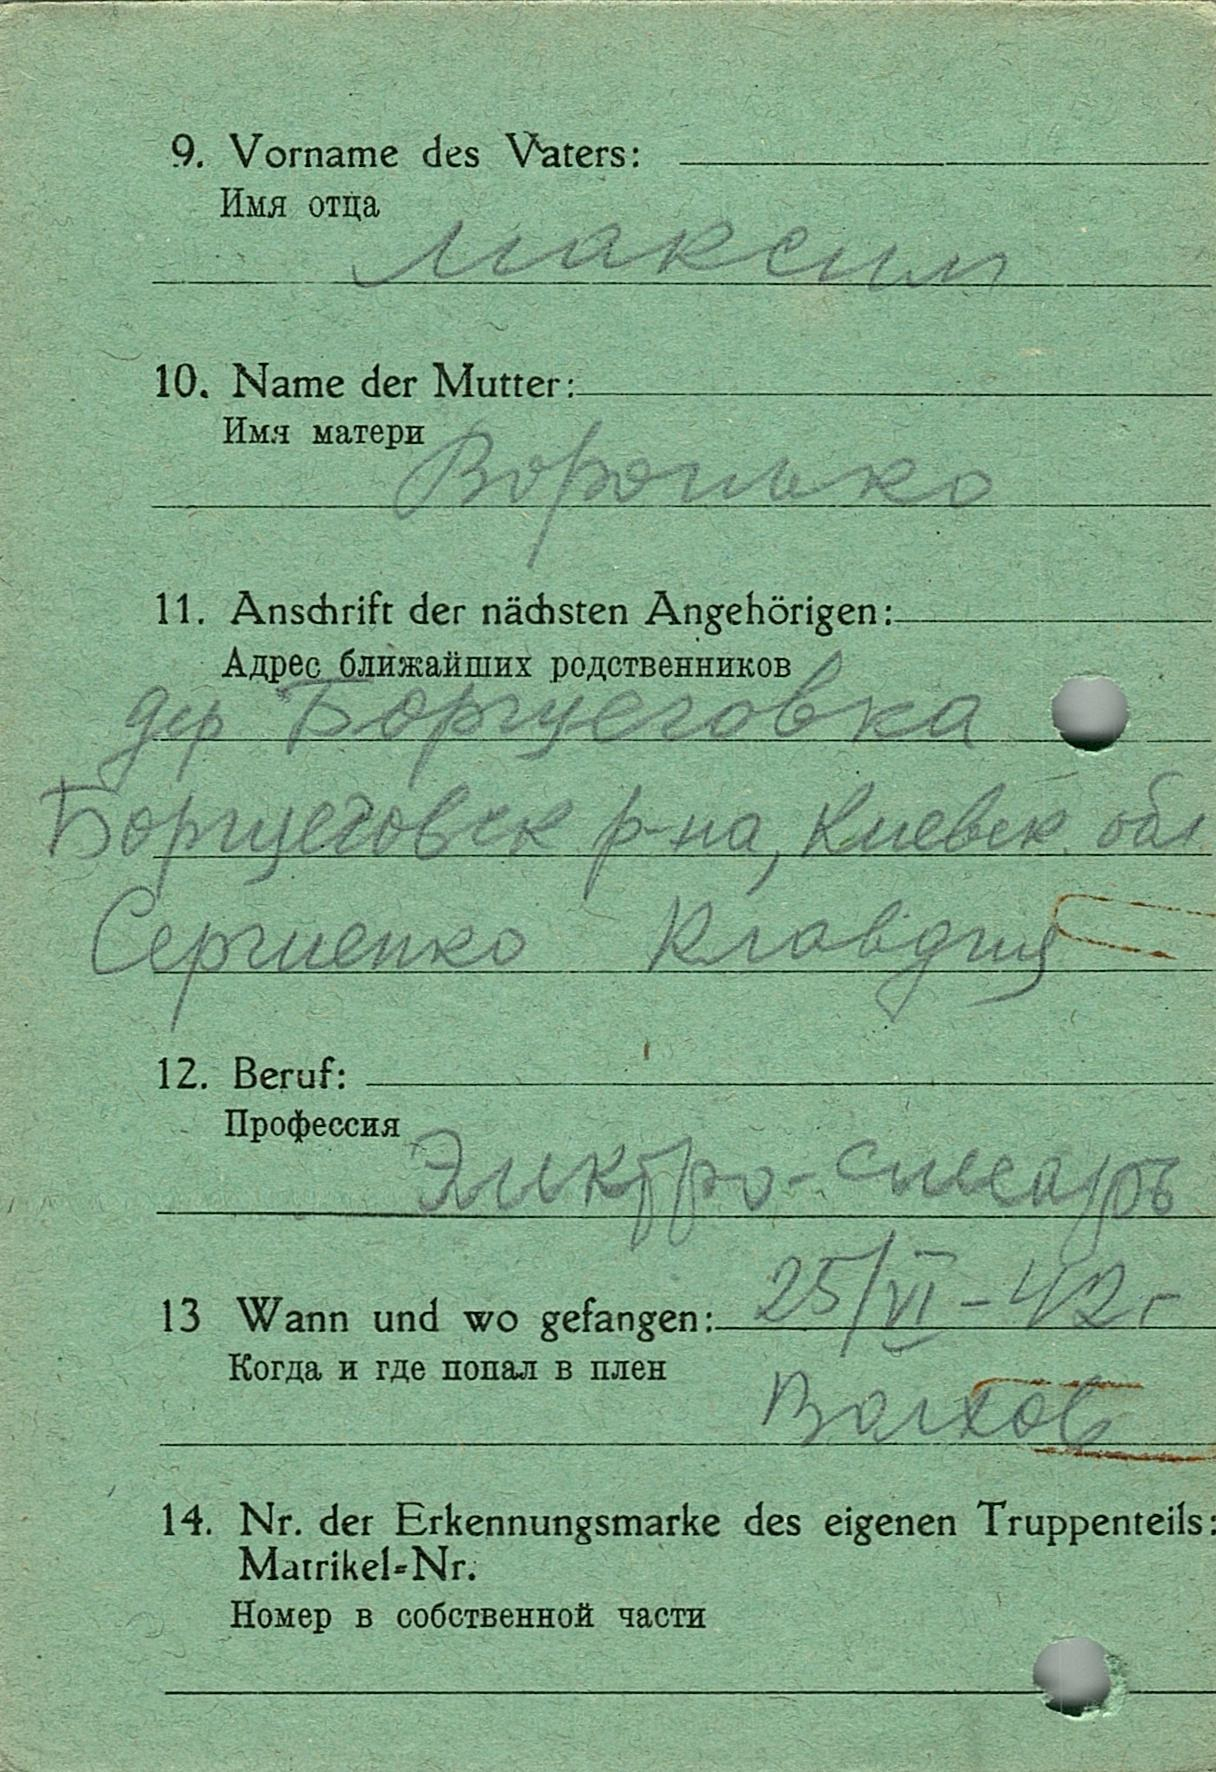 9. Vorname des Vaters:
Имя отца
Максим
10. Name der Mutter:
Имя матери
Воронько
11. Anschrift der nächsten Angehörigen:
Адрес ближайших родственников
дер Борщеговка
Борщеговск р-на, Киевск. обл
Сергиенко Клавдия
12. Beruf:
Профессия
Электро-слесарь
13 Wann und wo gefangen: 25/VI-42 г
Когда и где попал в плен
Волхов
14. Nr. der Erkennungsmarke des eigenen Truppenteils:
Matrikel-Nr.
Номер в собственной части